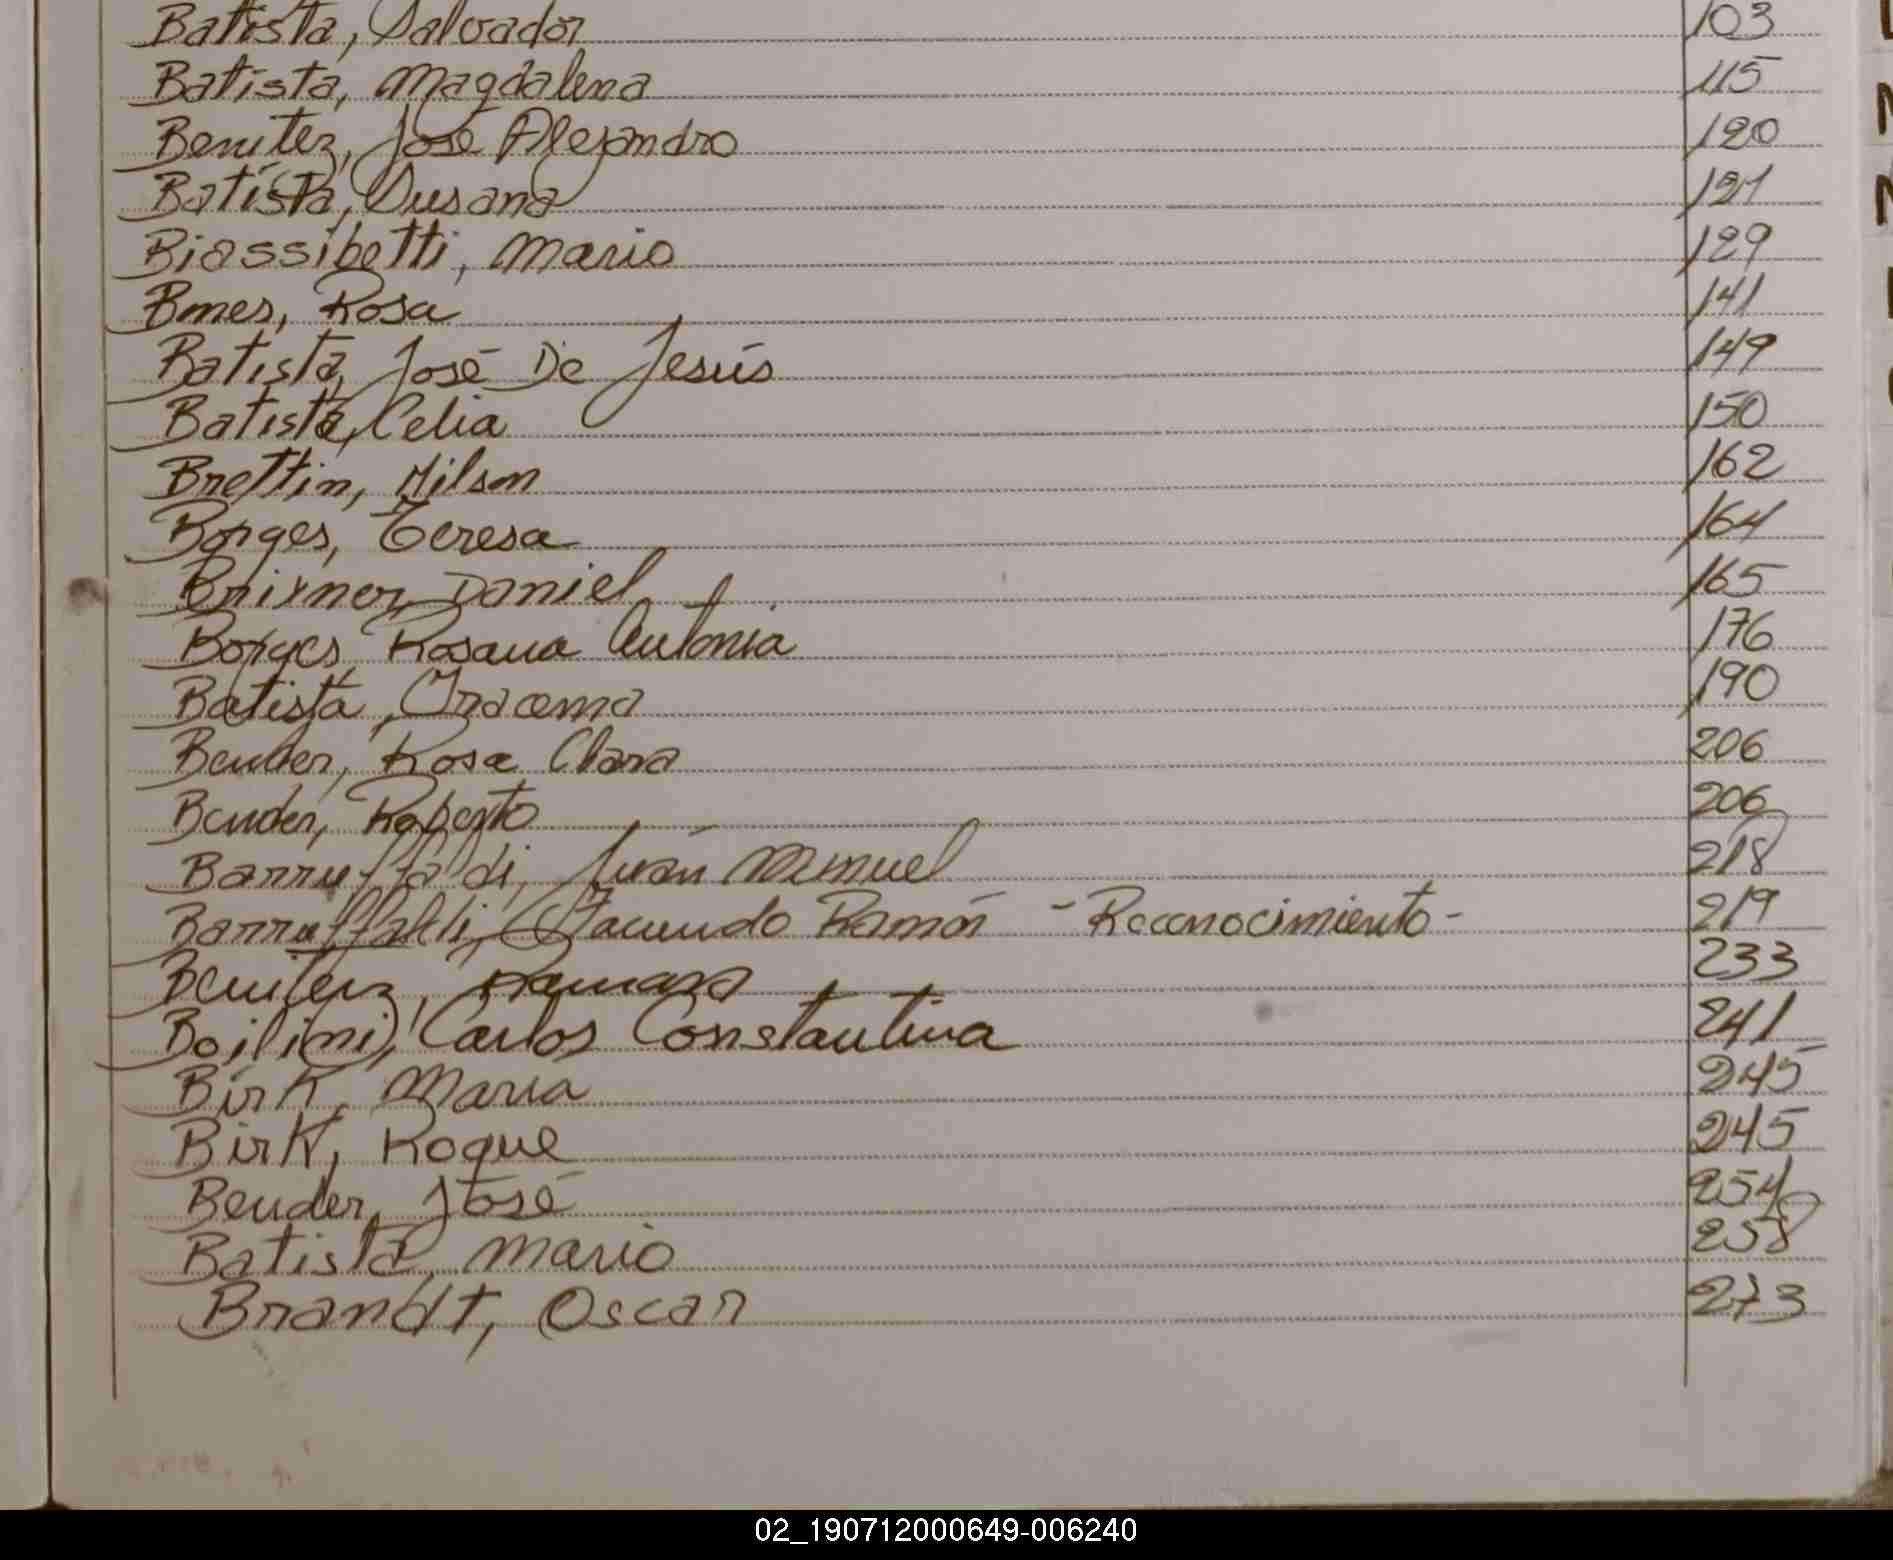 Batista, Salvador 103
Batista, Magdalena 115
Benitez, José Alejandro 120
Batista, Susana 121
Biassibetti, Mario 129
Bmes, Rosa 141
Batista, José De Jesús 149
Batista, Celia 150
Brettin, Milson 162
Borges, Teresa 164
Brixner, Daniel 165
Borges, Rosana Antonia 176
Batista, Iracema 190
Bender, Rosa Clara 206
Bender, Roberto 206
Barruffaldi, Juán Manuel 218
Barruffaldi, Facundo Ramón - Reconocimiento - 219
Benitez, 233
Carlos Constantina 241
Birk, Maria 245
Birk, Roque 245
Bender, José 254
Batista, Mario 258
Brandt, Oscar 273
02_190712000649-006240